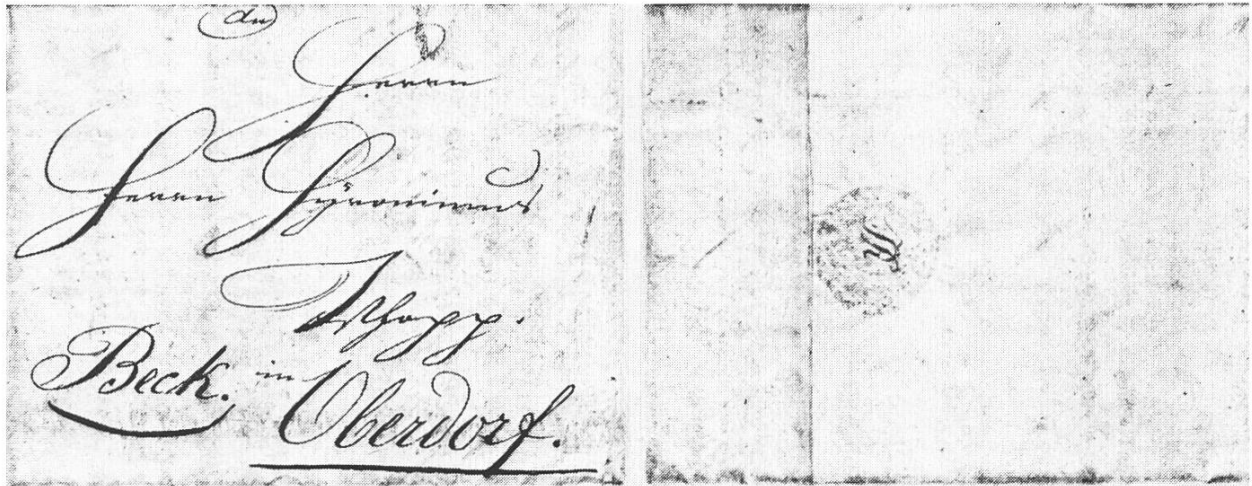 An
Herrn
Herrn Hÿronimus
Tschopp.
Beck. in Oberdorf.